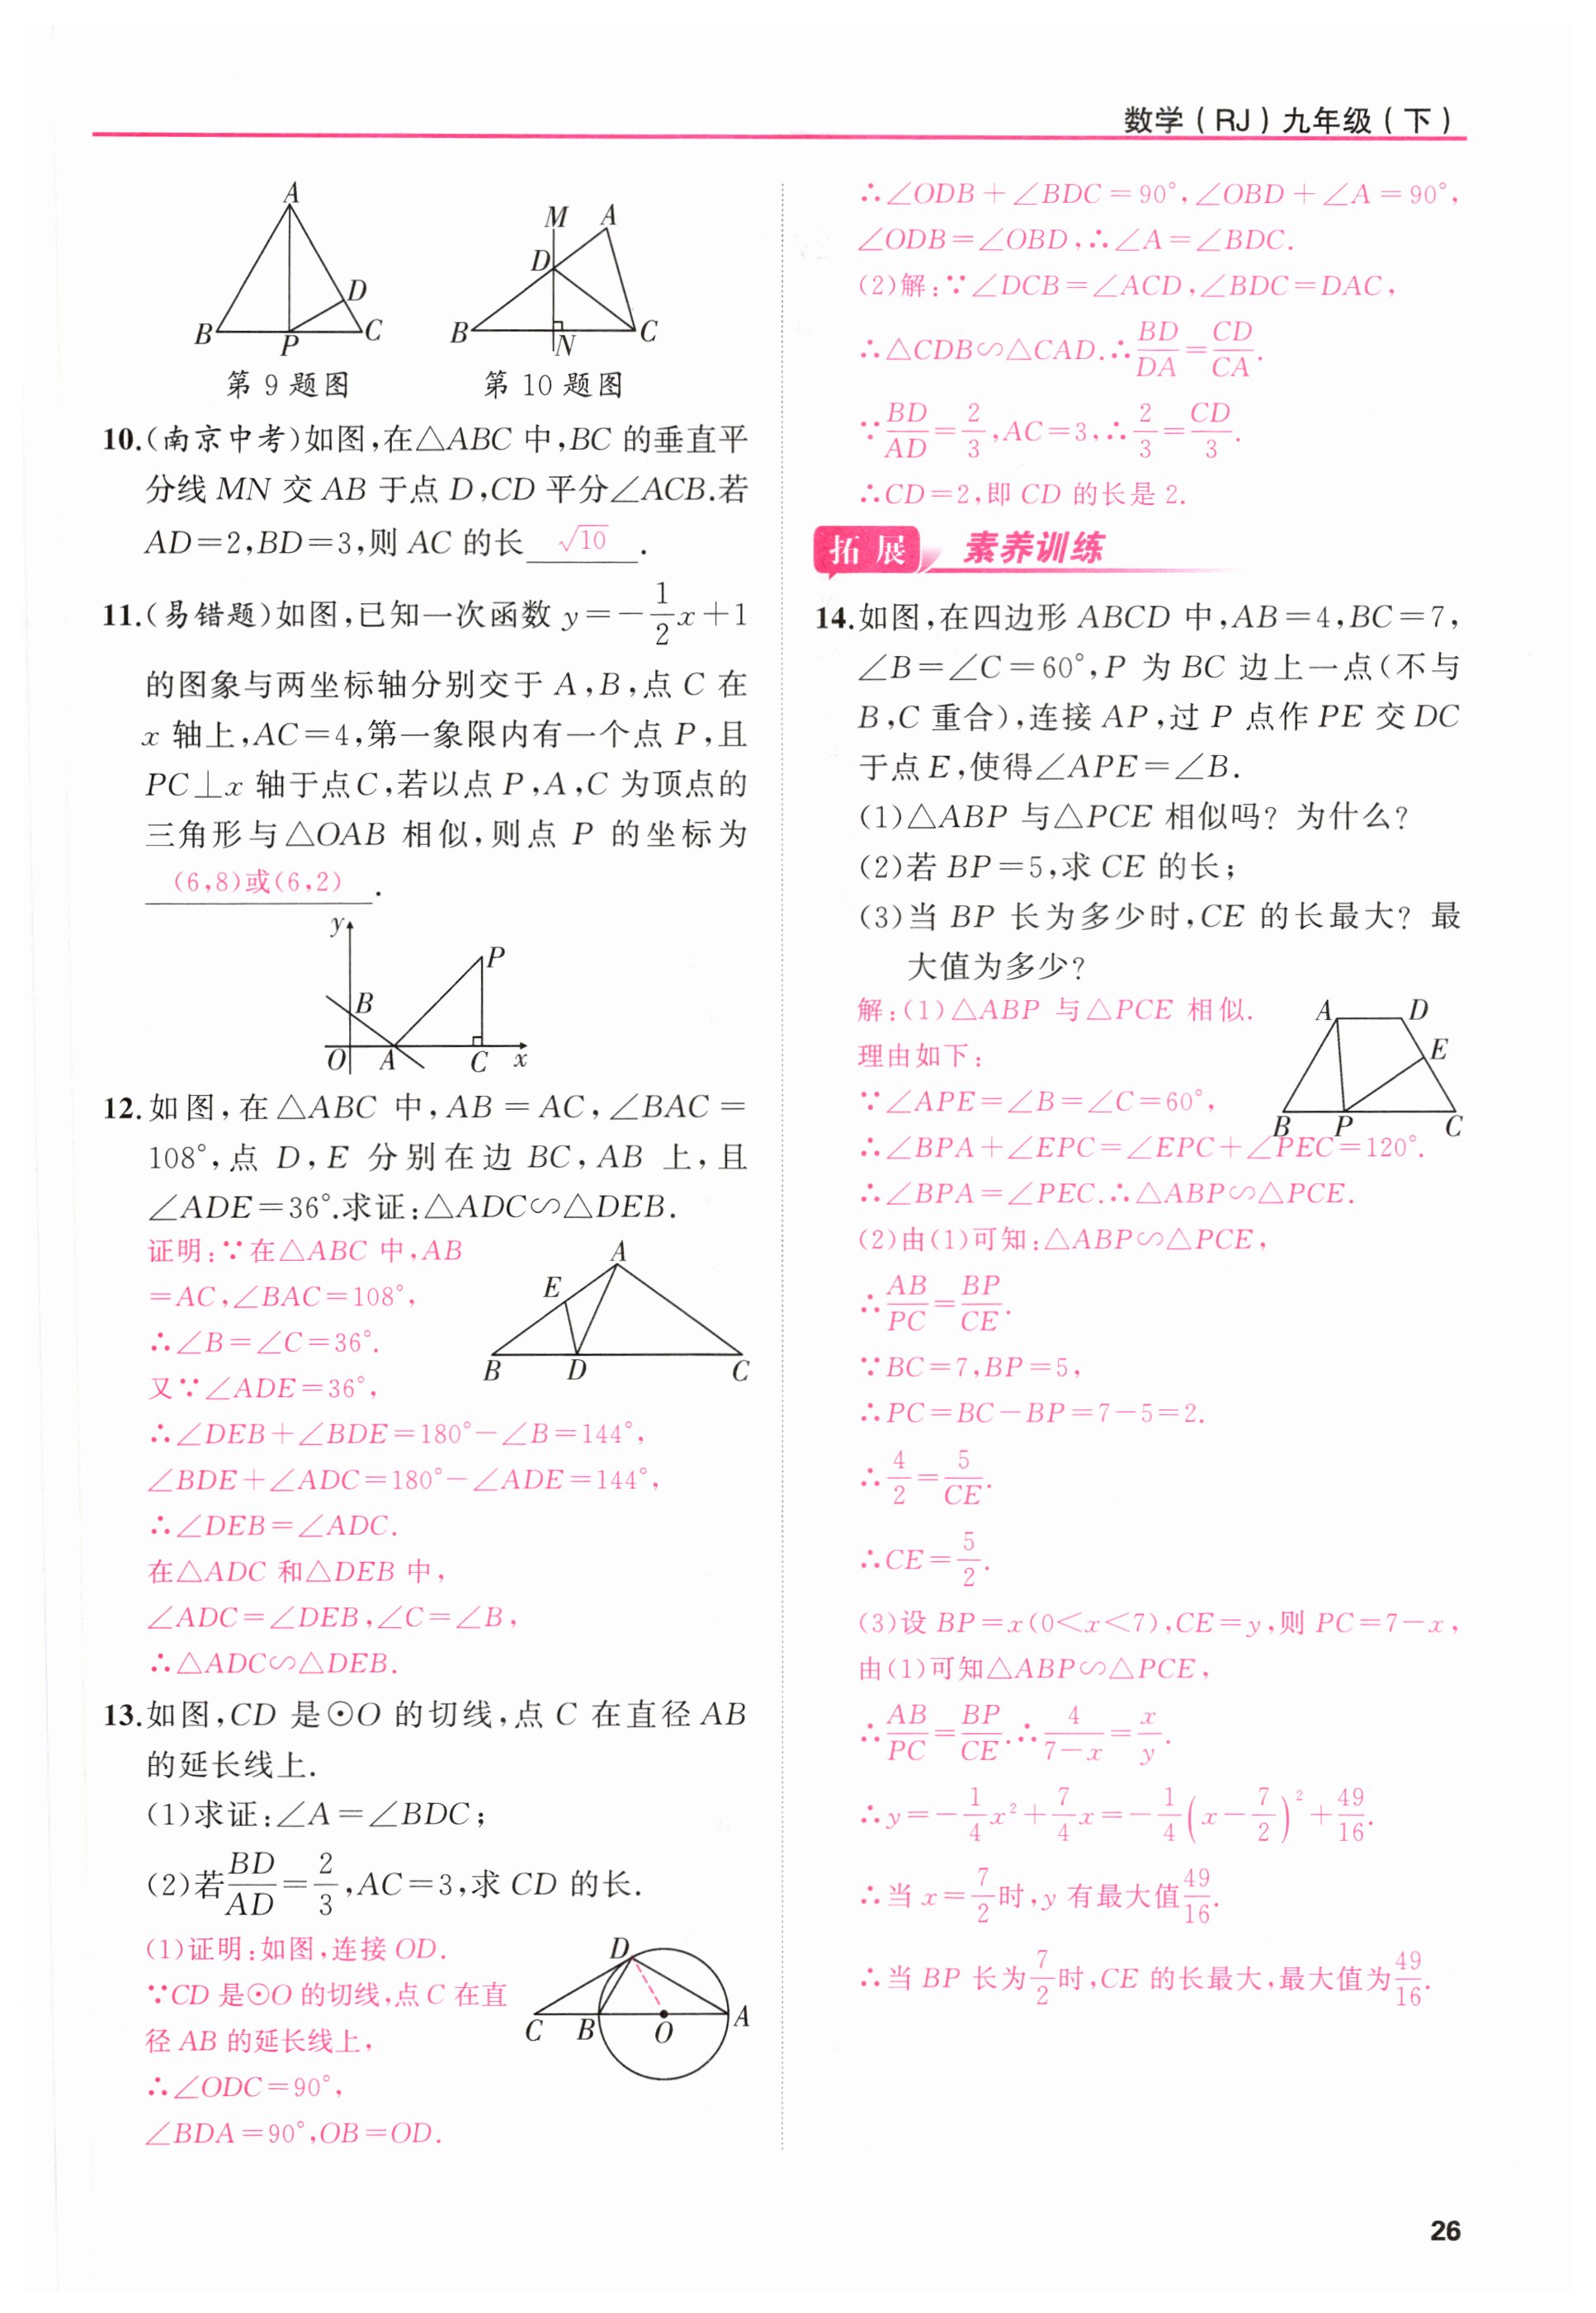 数学(RJ)九年级(下)
A
B
P
D
C
第9题图
M
A
D
B
N
C
第10题图
10.(南京中考)如图,在△ABC中,BC的垂直平
分线MN交AB于点D,CD平分∠ACB.若
AD=2,BD=3,则AC的长 √10 .
11.(易错题)如图,已知一次函数y=-1/2x+1
的图象与两坐标轴分别交于A,B,点C在
x轴上,AC=4,第一象限内有一个点P,且
PC⊥x轴于点C,若以点P,A,C为顶点的
三角形与△OAB相似,则点P的坐标为
(6,8)或(6,2) .
y
P
B
O
A
C
x
12.如图,在△ABC中,AB=AC,∠BAC=
108°,点D,E分别在边BC,AB上,且
∠ADE=36°.求证:△ADC∽△DEB.
证明:∵在△ABC中,AB
=AC,∠BAC=108°,
∴∠B=∠C=36°.
又∵∠ADE=36°,
A
E
B
D
C
∴∠DEB+∠BDE=180°-∠B=144°,
∠BDE+∠ADC=180°-∠ADE=144°,
∴∠DEB=∠ADC.
在△ADC和△DEB中,
∠ADC=∠DEB,∠C=∠B,
∴△ADC∽△DEB.
13.如图,CD是⊙O的切线,点C在直径AB
的延长线上.
(1)求证:∠A=∠BDC;
(2)若BD/AD=2/3,AC=3,求CD的长.
(1)证明:如图,连接OD.
∵CD是⊙O的切线,点C在直
径AB的延长线上,
∴∠ODC=90°,
∠BDA=90°,OB=OD.
D
C
B
O
A
∴∠ODB+∠BDC=90°,∠OBD+∠A=90°,
∠ODB=∠OBD,∴∠A=∠BDC.
(2)解:∵∠DCB=∠ACD,∠BDC=DAC,
∴△CDB∽△CAD.∴BD/DA=CD/CA.
∵BD/AD=2/3,AC=3,∴2/3=CD/3.
∴CD=2,即CD的长是2.
拓展 素养训练
14.如图,在四边形ABCD中,AB=4,BC=7,
∠B=∠C=60°,P为BC边上一点(不与
B,C重合),连接AP,过P点作PE交DC
于点E,使得∠APE=∠B.
(1)△ABP与△PCE相似吗?为什么?
(2)若BP=5,求CE的长;
(3)当BP长为多少时,CE的长最大?最
大值为多少?
解:(1)△ABP与△PCE相似.
理由如下:
∵∠APE=∠B=∠C=60°,
A
D
E
B
P
C
∴∠BPA+∠EPC=∠EPC+∠PEC=120°.
∴∠BPA=∠PEC.∴△ABP∽△PCE.
(2)由(1)可知:△ABP∽△PCE,
∴AB/PC=BP/CE.
∵BC=7,BP=5,
∴PC=BC-BP=7-5=2.
∴4/2=5/CE.
∴CE=5/2.
(3)设BP=x(0<x<7),CE=y,则PC=7-x,
由(1)可知△ABP∽△PCE,
∴AB/PC=BP/CE.∴4/(7-x)=x/y.
∴y=-1/4x²+7/4x=-1/4(x-7/2)²+49/16.
∴当x=7/2时,y有最大值49/16.
∴当BP长为7/2时,CE的长最大,最大值为49/16.
26